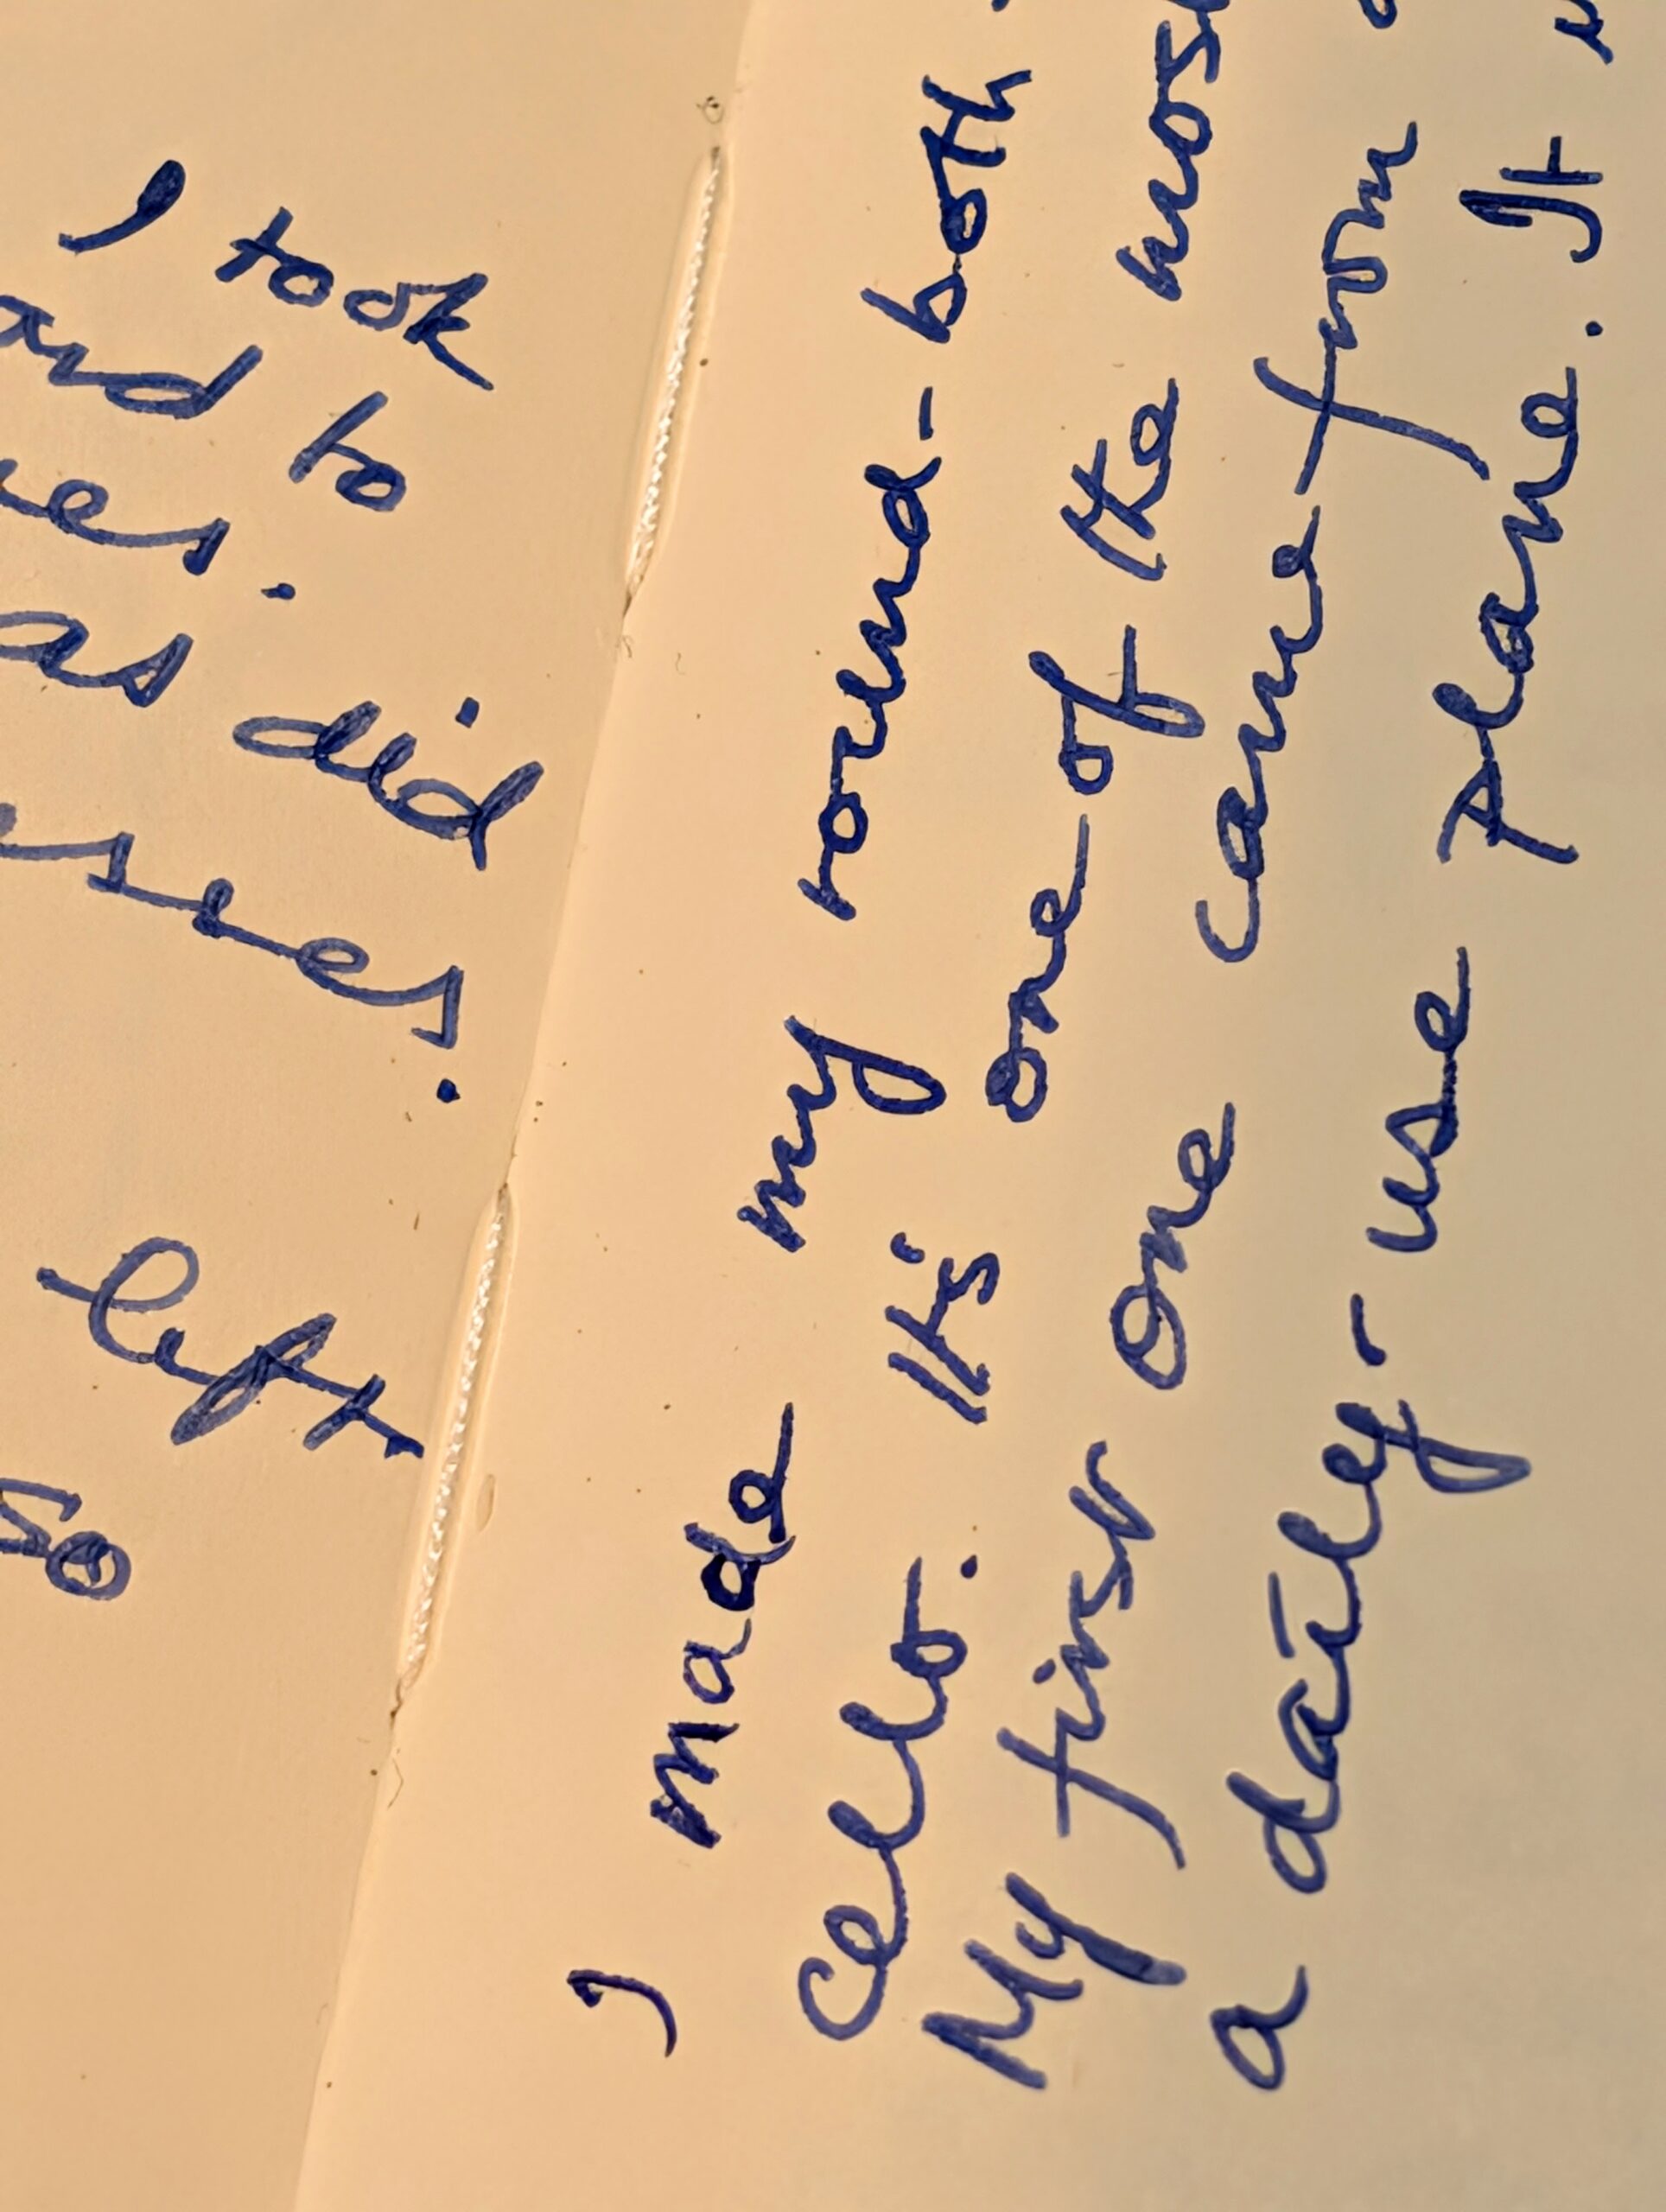 I took
and to
as did
left
so
I made my round-
cello. It's one of the
My first one came from
a daily-use plane. It